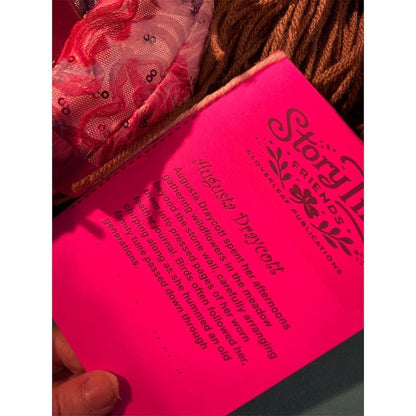 Story Ti
FRIENDS
CLOVERLEAF PUBLICATIONS
Augusta Draycott
Augusta Draycott spent her afternoons
gathering wildflowers in the meadow
beyond the stone wall, carefully arranging
into pressed pages of her worn
leather journal. Birds often followed her,
chirping along as she hummed an old
family tune passed down through
generations.